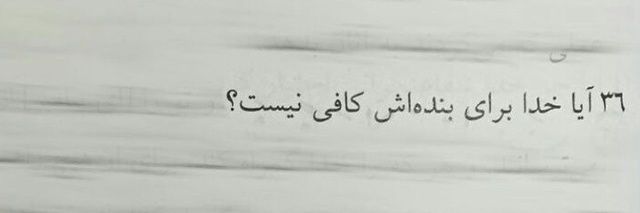 ۳۶ آیا خدا برای بنده‌اش کافی نیست؟